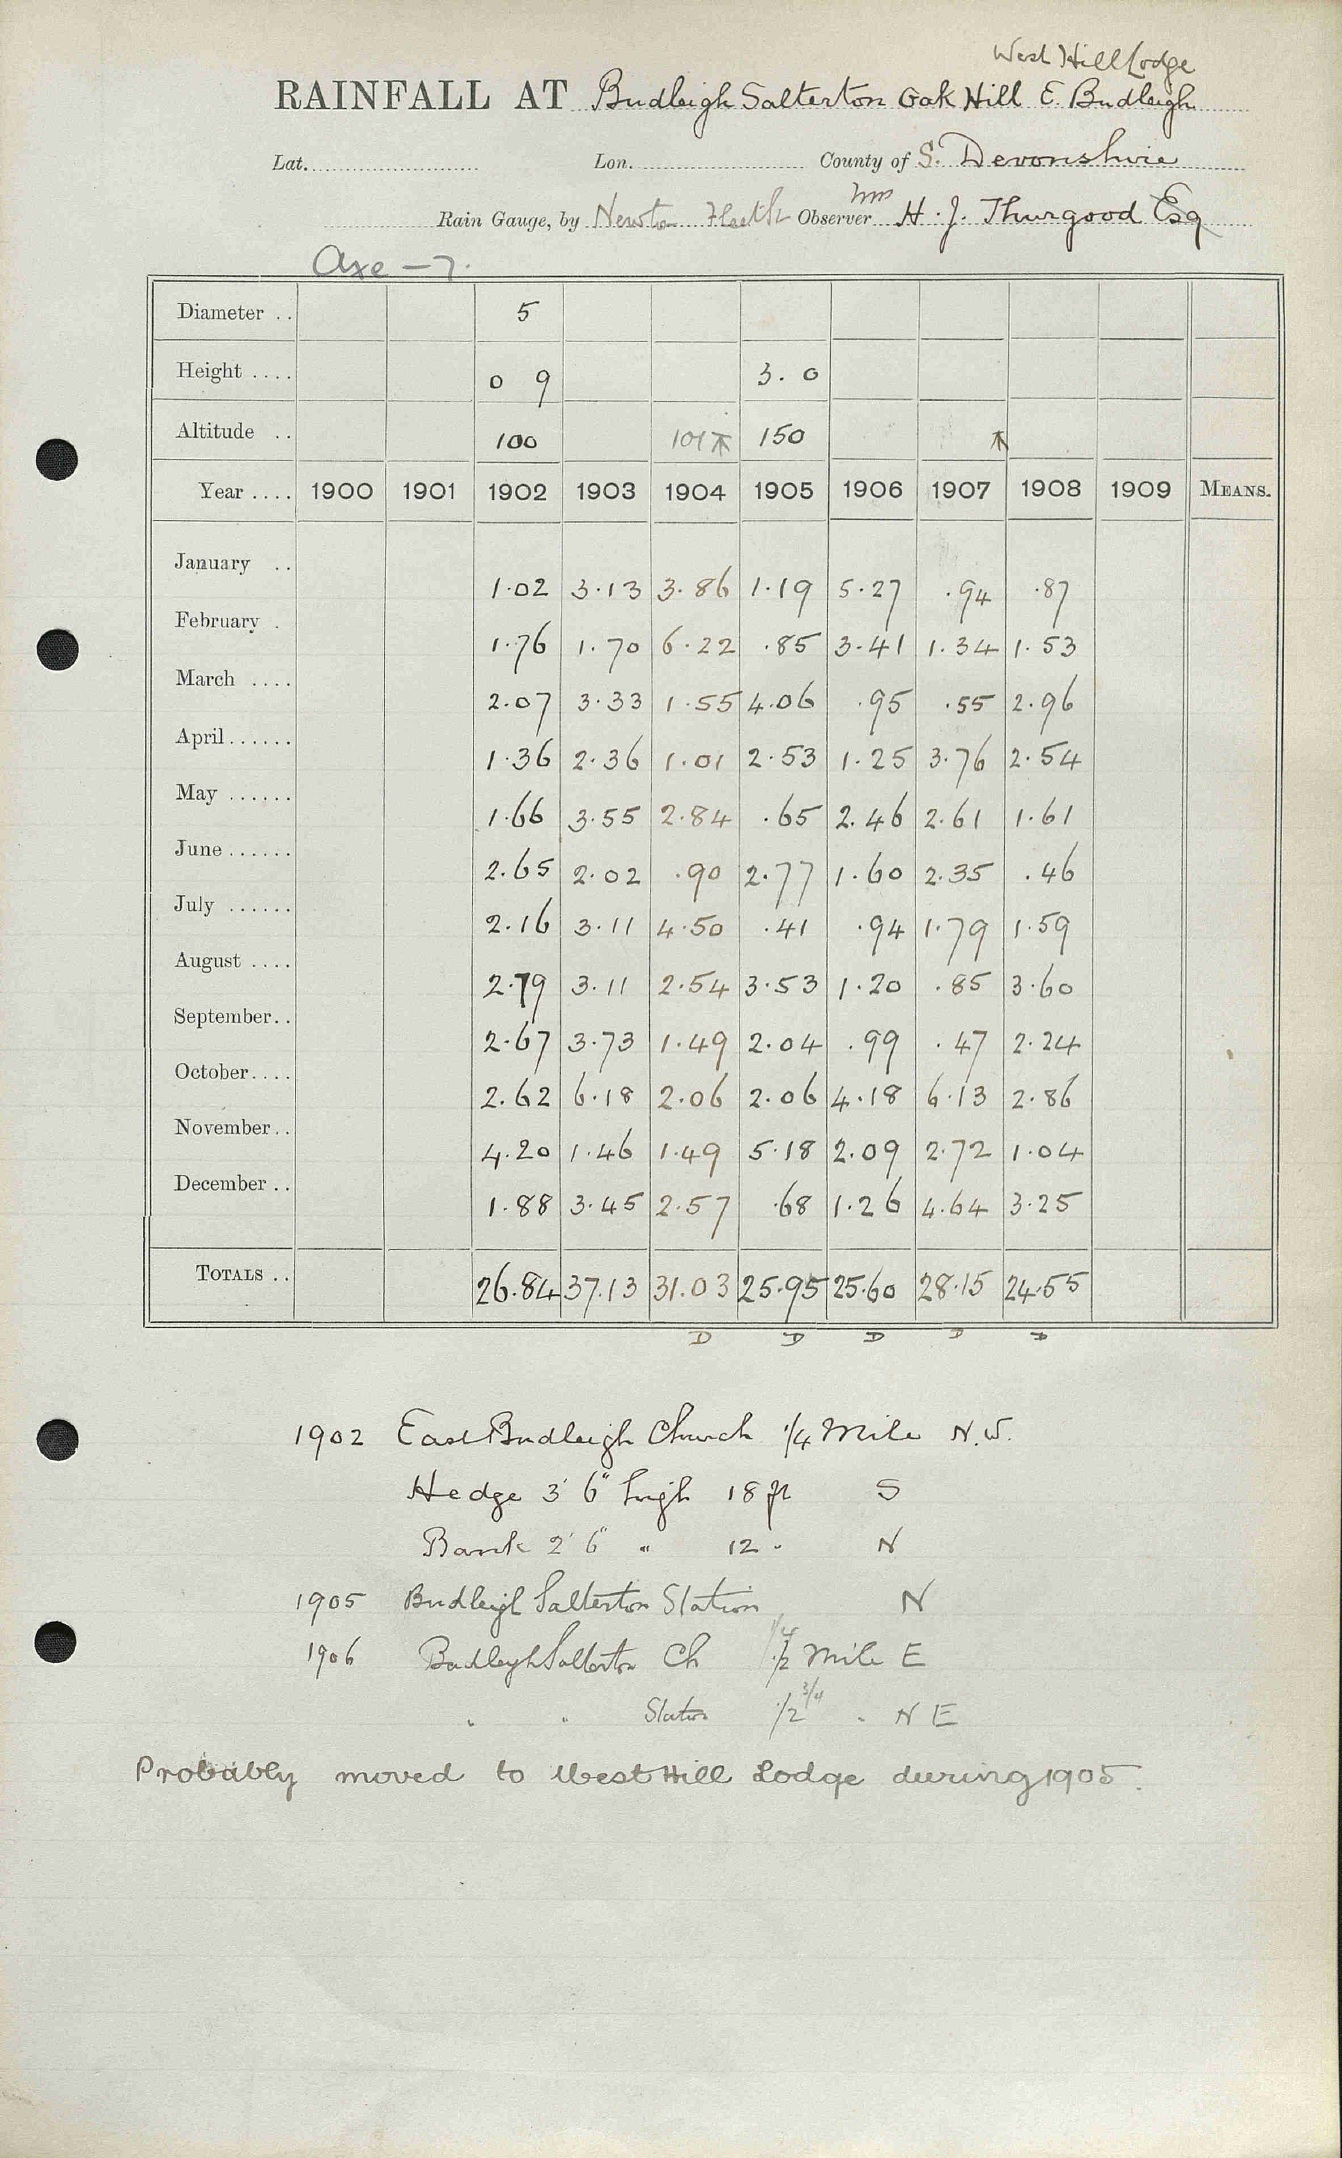 West Hill Lodge
RAINFALL AT Budleigh Salterton Oak Hill E. Budleigh
Lat. Lon. County of S. Devonshire
Rain Gauge, by Newton Heath Observer H. J. Thurgood Esq
Axe - 7.
Diameter .. 5
Height .... 0 9 3. 0
Altitude .. 100 101 150
Year .... 1900 1901 1902 1903 1904 1905 1906 1907 1908 1909 MEANS.
January .. 1.02 3.13 3.86 1.19 5.27 .94 .87
February . 1.76 1.70 6.22 .85 3.41 1.34 1.53
March .... 2.07 3.33 1.55 4.06 .95 .55 2.96
April...... 1.36 2.36 1.01 2.53 1.25 3.76 2.54
May ...... 1.66 3.55 2.84 .65 2.46 2.61 1.61
June...... 2.65 2.02 .90 2.77 1.60 2.35 .46
July ...... 2.16 3.11 4.50 .41 .94 1.79 1.59
August .... 2.79 3.11 2.54 3.53 1.20 .85 3.60
September.. 2.67 3.73 1.49 2.04 .99 .47 2.24
October.... 2.62 6.18 2.06 2.06 4.18 6.13 2.86
November.. 4.20 1.46 1.49 5.18 2.09 2.72 1.04
December .. 1.88 3.45 2.57 .68 1.26 4.64 3.25
TOTALS .. 26.84 37.13 31.03 25.95 25.60 28.15 24.55
D D D D D
1902 East Budleigh Church 1/4 Mile N.W.
Hedge 3' 6" high 18 ft S
Bank 2' 6" " 12 " N
1905 Budleigh Salterton Station N
1906 Budleigh Salterton Ch 1/2 1/4 Mile E
" " Station 1/2 3/4 " N E
Probably moved to West Hill Lodge during 1905.